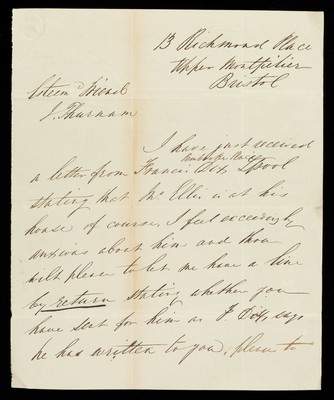 13 Richmond Place
Upper Montpelier
Bristol
Esteemd Friend
J. Thurnam
I have just received
a letter from Francis Dix, Lpool
stating that Mr Ellis is at his
house of course I feel exceedingly
anxious about him and thou
wilt please to let me have a line
by return stating whether you
have sent for him as F. Dix, says
he has written to you, please to